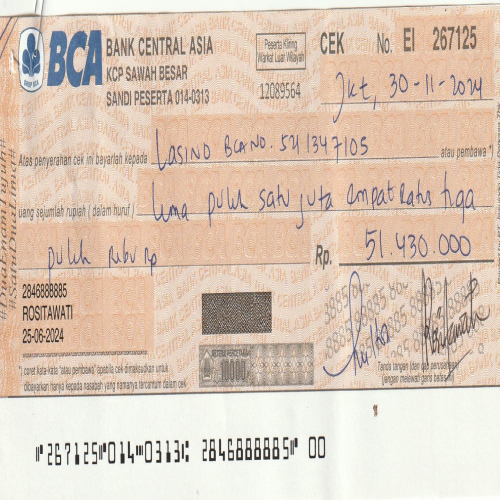 BCA BANK CENTRAL ASIA
KCP SAWAH BESAR
SANDI PESERTA 014-0313
Peserta Kliring
Warkat Luar Wilayah
12089564
CEK No. EI 267125
Jkt, 30-11-2024
Atas penyerahan cek ini bayarlah kepada LASINO BCA NO. 521347105 atau pembawa *)
uang sejumlah rupiah ( dalam huruf ) Lima puluh satu juta empat Ratus tiga
puluh Ribu Rp Rp. 51.430.000
2846888885
ROSITAWATI
25-06-2024
10000
*) coret kata-kata "atau pembawa" apabila cek dimaksudkan untuk
dibayarkan hanya kepada nasabah yang namanya tercantum dalam cek
Tanda tangan (dan cap perusahaan)
(jangan melewati garis batas ini)
⑈267125⑈014⑉0313⑆ 2846888885⑈ 00